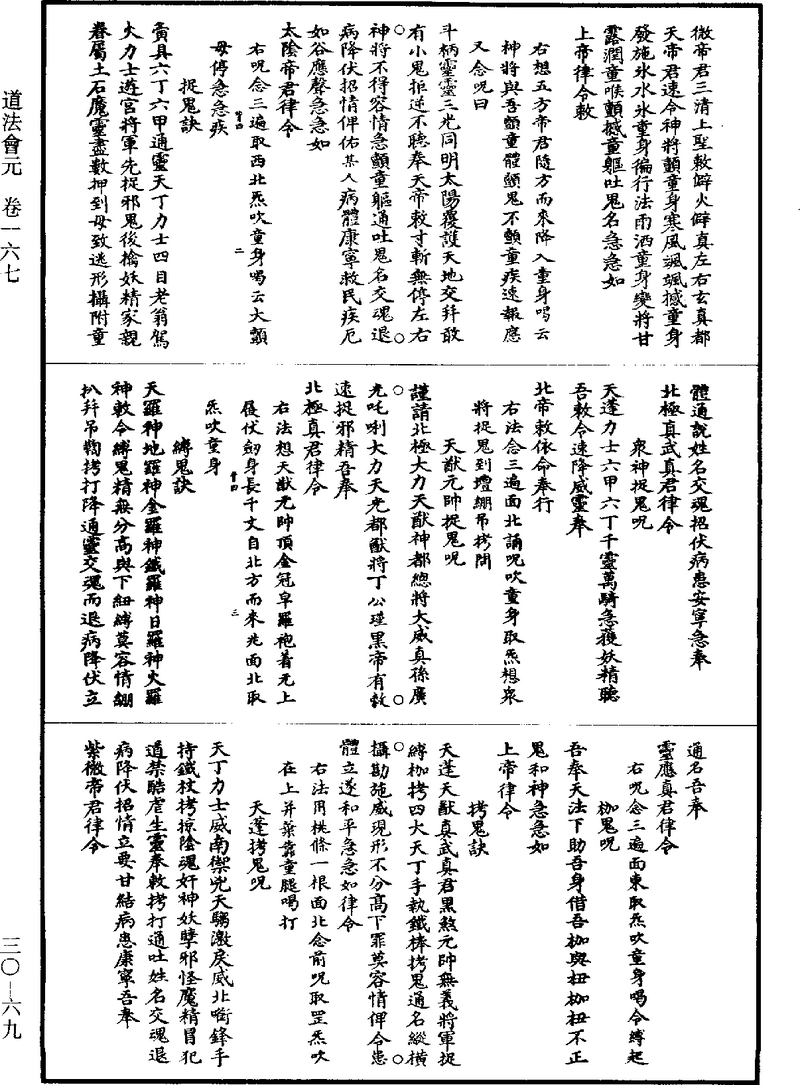 道法會元　卷一六七
三〇—六九
微帝君三清上聖敕僻火僻真左右玄真都
天帝君速令神將顫童身寒風颯颯撼童身
發施氷水氷童身徧行法雨洒童身變將甘
露潤童喉顫撼童軀吐鬼名急急如
上帝律令敕
右想五方帝君隨方而來降入童身喝云
神將與吾顫童體顫鬼不顫童疾速報應
又念呪曰
斗柄靈靈三光同明太陽覆護天地交幷敢
有小鬼拒逆不聽奉天帝敕寸斬無停左右
神將不得容情急顫童軀通吐鬼名交魂退
病降伏招情俾佑某人病體康寧救民疾厄
如谷應聲急急如
太陰帝君律令
右呪念三遍取西北炁吹童身喝云大顫
毋停急急疾
捉鬼訣
賫具六丁六甲通靈天丁力士四目老翁駕
火力士遊宮將軍先捉邪鬼後擒妖精家親
眷屬土石魔靈盡數押到毋致迯形攝附童
體通說姓名交魂招伏病患安寧急奉
北極真武真君律令
衆神捉鬼呪
天蓬力士六甲六丁千靈萬騎急獲妖精聽
吾敕令速降威靈奉
北帝敕依命奉行
右法念三遍面北誦呪吹童身取炁想衆
將捉鬼到壇綳吊拷問
天猷元帥捉鬼呪
謹請北極大力天猷神都總將大威真孫廣
光吒唎大力天光都猷將丁公瑾黑帝有敕
速捉邪精吾奉
北極真君律令
右法想天猷元帥頂金冠皁羅袍着元上
履伏劒身長千丈自北方而來兆面北取
炁吹童身
縛鬼訣
天羅神地羅神金羅神鐵羅神日羅神火羅
神敕令縛鬼精無分高與下紐縛莫容情綳
扒幷吊鞫拷打降通靈交魂而退病降伏立
通名吾奉
靈應真君律令
右呪念三遍面東取炁吹童身喝令縛起
枷鬼呪
吾奉天法下助吾身借吾枷與杻枷杻不正
鬼和神急急如
上帝律令
拷鬼訣
天蓬天猷真武真君黑煞元帥無義將軍捉
縛枷拷四大天丁手執鐵棒拷鬼通名縱橫
攝勘施威現形不分高下罪莫容情俾令患
體立遂和平急急如律令
右法用桃條一根面北念前呪取罡炁吹
在上幷藥靠童腿喝打
天蓬拷鬼呪
天丁力士威南禦兇天騶激戾威北啣鋒手
持鐵杖拷掠陰魂奸神妖孽邪怪魔精冒犯
道禁酷虐生靈奉敕拷打通吐姓名交魂退
病降伏招情立要甘結病患康寧吾奉
紫微帝君律令